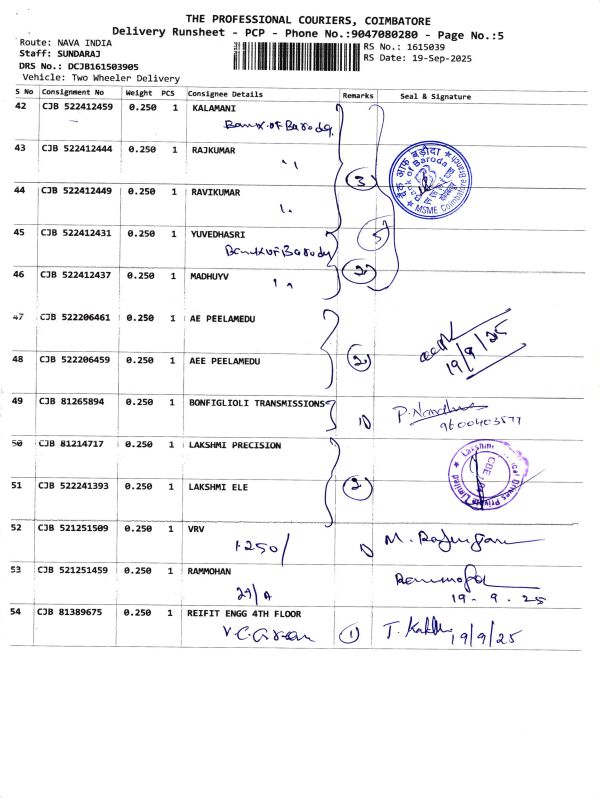 THE PROFESSIONAL COURIERS, COIMBATORE
Delivery Runsheet - PCP - Phone No.:9047080280 - Page No.:5
Route: NAVA INDIA
Staff: SUNDARAJ
DRS No.: DCJB161503905
Vehicle: Two Wheeler Delivery
RS No.: 1615039
RS Date: 19-Sep-2025
S No Consignment No Weight PCS Consignee Details Remarks Seal & Signature
42 CJB 522412459 0.250 1 KALAMANI
Bank of Baroda
43 CJB 522412444 0.250 1 RAJKUMAR
44 CJB 522412449 0.250 1 RAVIKUMAR
3
बैंक ऑफ बड़ौदा
Bank of Baroda
MSME Coimbatore Branch
45 CJB 522412431 0.250 1 YUVEDHASRI
Bank of Baroda
5
46 CJB 522412437 0.250 1 MADHUYV
2
47 CJB 522206461 0.250 1 AE PEELAMEDU
48 CJB 522206459 0.250 1 AEE PEELAMEDU
2
19/9/25
49 CJB 81265894 0.250 1 BONFIGLIOLI TRANSMISSIONS
1)
9600403577
50 CJB 81214717 0.250 1 LAKSHMI PRECISION
51 CJB 522241393 0.250 1 LAKSHMI ELE
2
Lakshmi
Drives Private Limited
52 CJB 521251509 0.250 1 VRV
1250/
1)
53 CJB 521251459 0.250 1 RAMMOHAN
29/A
19.9.25
54 CJB 81389675 0.250 1 REIFIT ENGG 4TH FLOOR
1
19/9/25